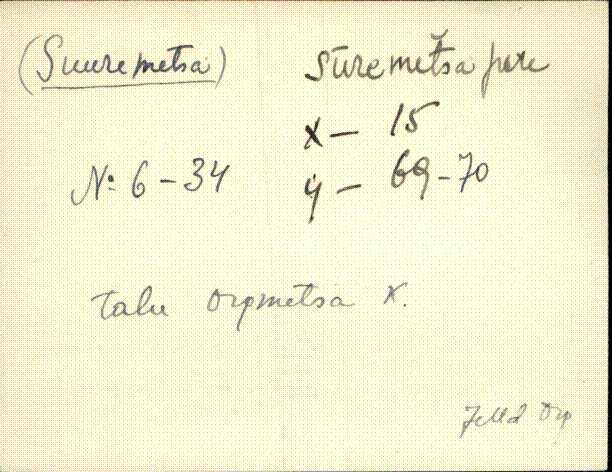 (Suuremetsa) Sūremetsa pere
x — 15
№ 6 - 34 y — 69-70
talu Orgmetsa k.